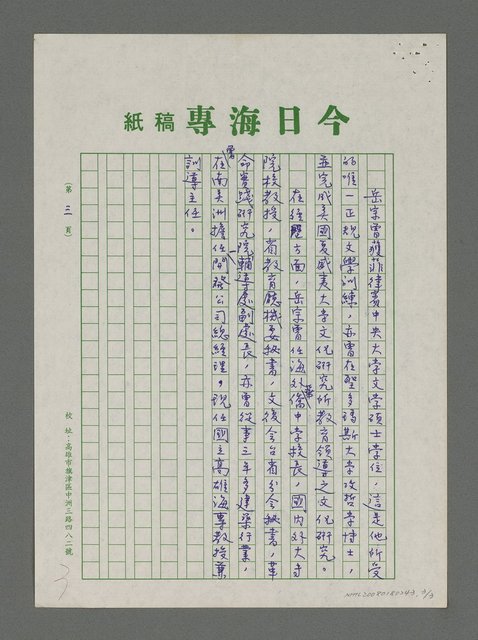 今日海專稿紙
岳宗曾獲菲律賓中央大學文學碩士學位，這是他所受
的唯一正規文學訓練，亦曾在聖多瑪斯大學攻哲學博士，
並完成美國夏威夷大學文化研究所教育領導之文化研究。
在經歷方面，岳宗曾任海外華僑中學校長，國內外大專
院校教授，省教育廳機要秘書，文復會台省分會秘書，革
命實踐研究院輔導處副處長，亦曾從事三年多建築行業，
曾在南美洲擔任開發公司總經理，現任國立高雄海專教授兼
訓導主任。
（第 三 頁）
校址：高雄市旗津區中洲三路四八二號
3
NMTL20080180243, 3/3